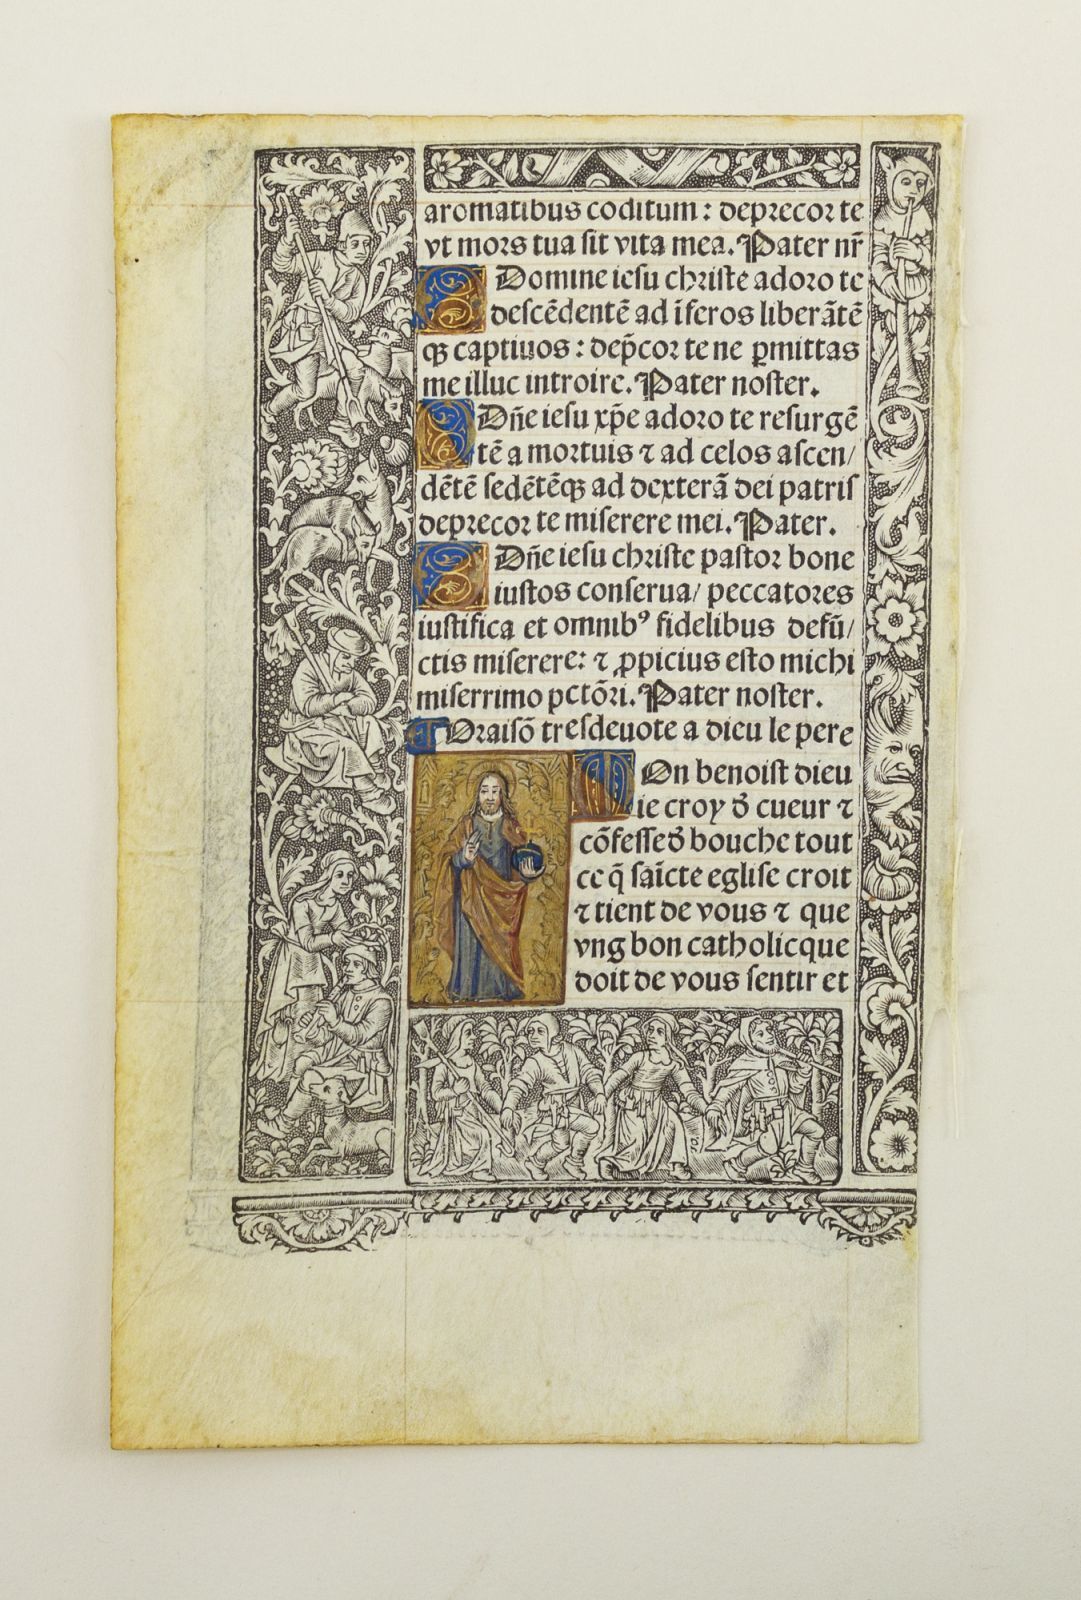 aromatibus coditum : deprecor te
vt mors tua sit vita mea. Pater nr̄
O Domine iesu christe adoro te
descēdentē ad īferos liberātē
qꝫ captiuos : dep̄cor te ne ꝑmittas
me illuc introire. Pater noster.
O Dn̄e iesu xp̄e adoro te resurgē
tē a mortuis ⁊ ad celos ascen/
dētē sedētēqꝫ ad dexterā dei patris
deprecor te miserere mei. Pater.
O Dn̄e iesu christe pastor bone
iustos conserua/ peccatores
iustifica et omnibꝰ fidelibus defū/
ctis miserere: ⁊ ꝓpicius esto michi
miserrimo pctōri. Pater noster.
Oraisō tresdeuote a dieu le pere
MOn benoist dieu
ie croy d̄ cueur ⁊
cōfesse d̄ bouche tout
ce q̄ saīcte eglise croit
⁊ tient de vous ⁊ que
vng bon catholicque
doit de vous sentir et